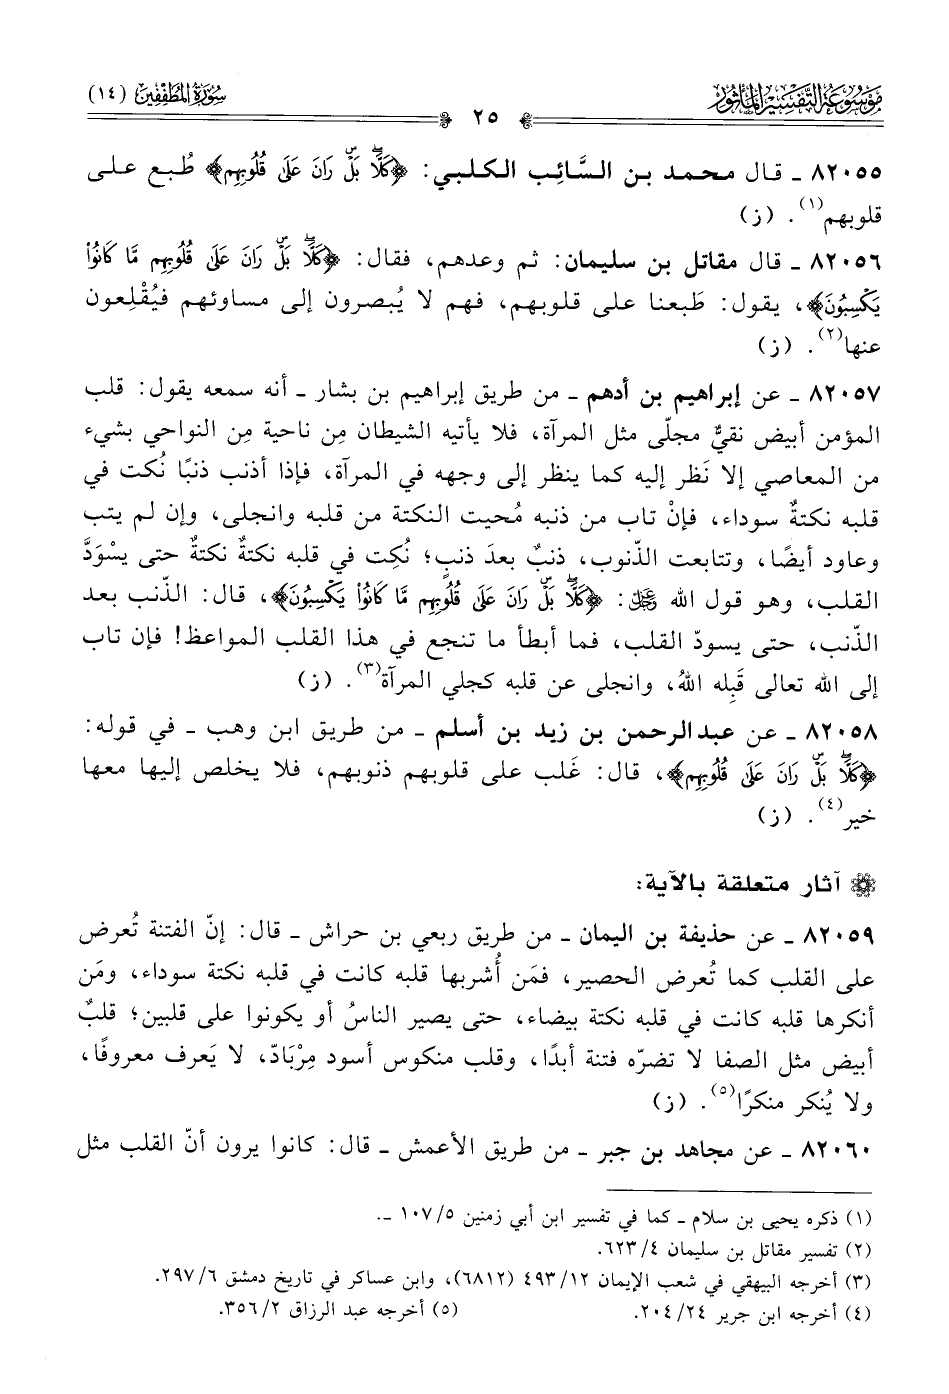 موسوعة التفسير المأثور
٢٥
سورة المطففين (١٤)
٨٢٠٥٥ ـ قال محمد بن السَّائِب الكلبي: ﴿كَلَّا بَلْ رَانَ عَلَى قُلُوبِهِم﴾ طُبع على
قلوبهم(١). (ز)
٨٢٠٥٦ ـ قال مقاتل بن سليمان: ثم وعدهم، فقال: ﴿كَلَّا بَلْ رَانَ عَلَى قُلُوبِهِم مَّا كَانُوا
يَكْسِبُونَ﴾، يقول: طَبعنا على قلوبهم، فهم لا يُبصرون إلى مساوئهم فيُقْلِعون
عنها(٢). (ز)
٨٢٠٥٧ ـ عن إبراهيم بن أدهم ـ من طريق إبراهيم بن بشار ـ أنه سمعه يقول: قلب
المؤمن أبيض نقيٌّ مجلّى مثل المرآة، فلا يأتيه الشيطان مِن ناحية مِن النواحي بشيء
من المعاصي إلا نَظر إليه كما ينظر إلى وجهه في المرآة، فإذا أذنب ذنبًا نُكت في
قلبه نكتةٌ سوداء، فإنْ تاب من ذنبه مُحيت النكتة من قلبه وانجلى، وإن لم يتب
وعاود أيضًا، وتتابعت الذّنوب، ذنبٌ بعدَ ذنبٍ؛ نُكِت في قلبه نكتةٌ نكتةٌ حتى يسْوَدَّ
القلب، وهو قول الله ﷿: ﴿كَلَّا بَلْ رَانَ عَلَى قُلُوبِهِم مَّا كَانُوا يَكْسِبُونَ﴾، قال: الذّنب بعد
الذّنب، حتى يسودّ القلب، فما أبطأ ما تنجع في هذا القلب المواعظ! فإن تاب
إلى الله تعالى قَبِله اللهُ، وانجلى عن قلبه كجلي المرآة(٣). (ز)
٨٢٠٥٨ ـ عن عبدالرحمن بن زيد بن أسلم ـ من طريق ابن وهب ـ في قوله:
﴿كَلَّا بَلْ رَانَ عَلَى قُلُوبِهِم﴾، قال: غَلب على قلوبهم ذنوبهم، فلا يخلص إليها معها
خير(٤). (ز)
آثار متعلقة بالآية:
٨٢٠٥٩ ـ عن حذيفة بن اليمان ـ من طريق ربعي بن حراش ـ قال: إنّ الفتنة تُعرض
على القلب كما تُعرض الحصير، فمَن أُشربها قلبه كانت في قلبه نكتة سوداء، ومَن
أنكرها قلبه كانت في قلبه نكتة بيضاء، حتى يصير الناسُ أو يكونوا على قلبين؛ قلبٌ
أبيض مثل الصفا لا تضرّه فتنة أبدًا، وقلب منكوس أسود مِرْبَادّ، لا يَعرف معروفًا،
ولا يُنكر منكرًا(٥). (ز)
٨٢٠٦٠ ـ عن مجاهد بن جبر ـ من طريق الأعمش ـ قال: كانوا يرون أنّ القلب مثل
(١) ذكره يحيى بن سلام ـ كما في تفسير ابن أبي زمنين ٥/ ١٠٧ ـ.
(٢) تفسير مقاتل بن سليمان ٤/ ٦٢٣.
(٣) أخرجه البيهقي في شعب الإيمان ١٢/ ٤٩٣ (٦٨١٢)، وابن عساكر في تاريخ دمشق ٦/ ٢٩٧.
(٤) أخرجه ابن جرير ٢٤/ ٢٠٤. (٥) أخرجه عبد الرزاق ٢/ ٣٥٦.